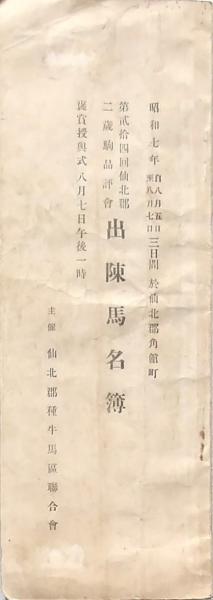 昭和七年自八月五日至八月七日三日間於仙北郡角館町
第貳拾四回仙北郡
二歲駒品評會
出陳馬名簿
褒賞授與式八月七日午後一時
主催 仙北郡種牛馬區聯合會